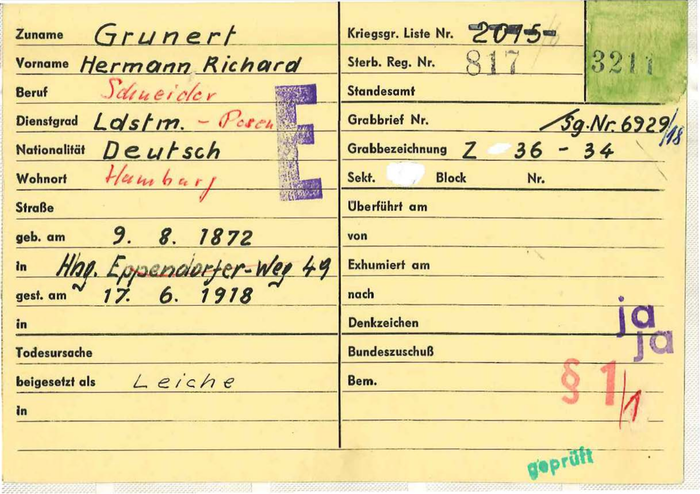 Zuname Grunert
Vorname Hermann Richard
Beruf Schneider
Dienstgrad Ldstm. - Posen
Nationalität Deutsch
Wohnort Hamburg
Straße
geb. am 9. 8. 1872
in Hbg. Eppendorfer-Weg 49
gest. am 17. 6. 1918
in
Todesursache
beigesetzt als Leiche
in
E
Kriegsgr. Liste Nr. 2015
Sterb. Reg. Nr. 817
3211
Standesamt
Grabbrief Nr. Sg.Nr.6929/18
Grabbezeichnung Z 36 - 34
Sekt. Block Nr.
Überführt am
von
Exhumiert am
nach
Denkzeichen ja
Bundeszuschuß ja
Bem. § 1/1
geprüft